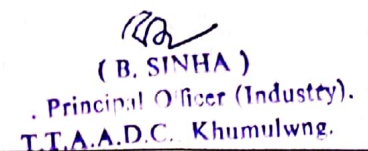 ( B. SINHA )
. Principal Officer (Industry).
T.T.A.A.D.C. Khumulwng.